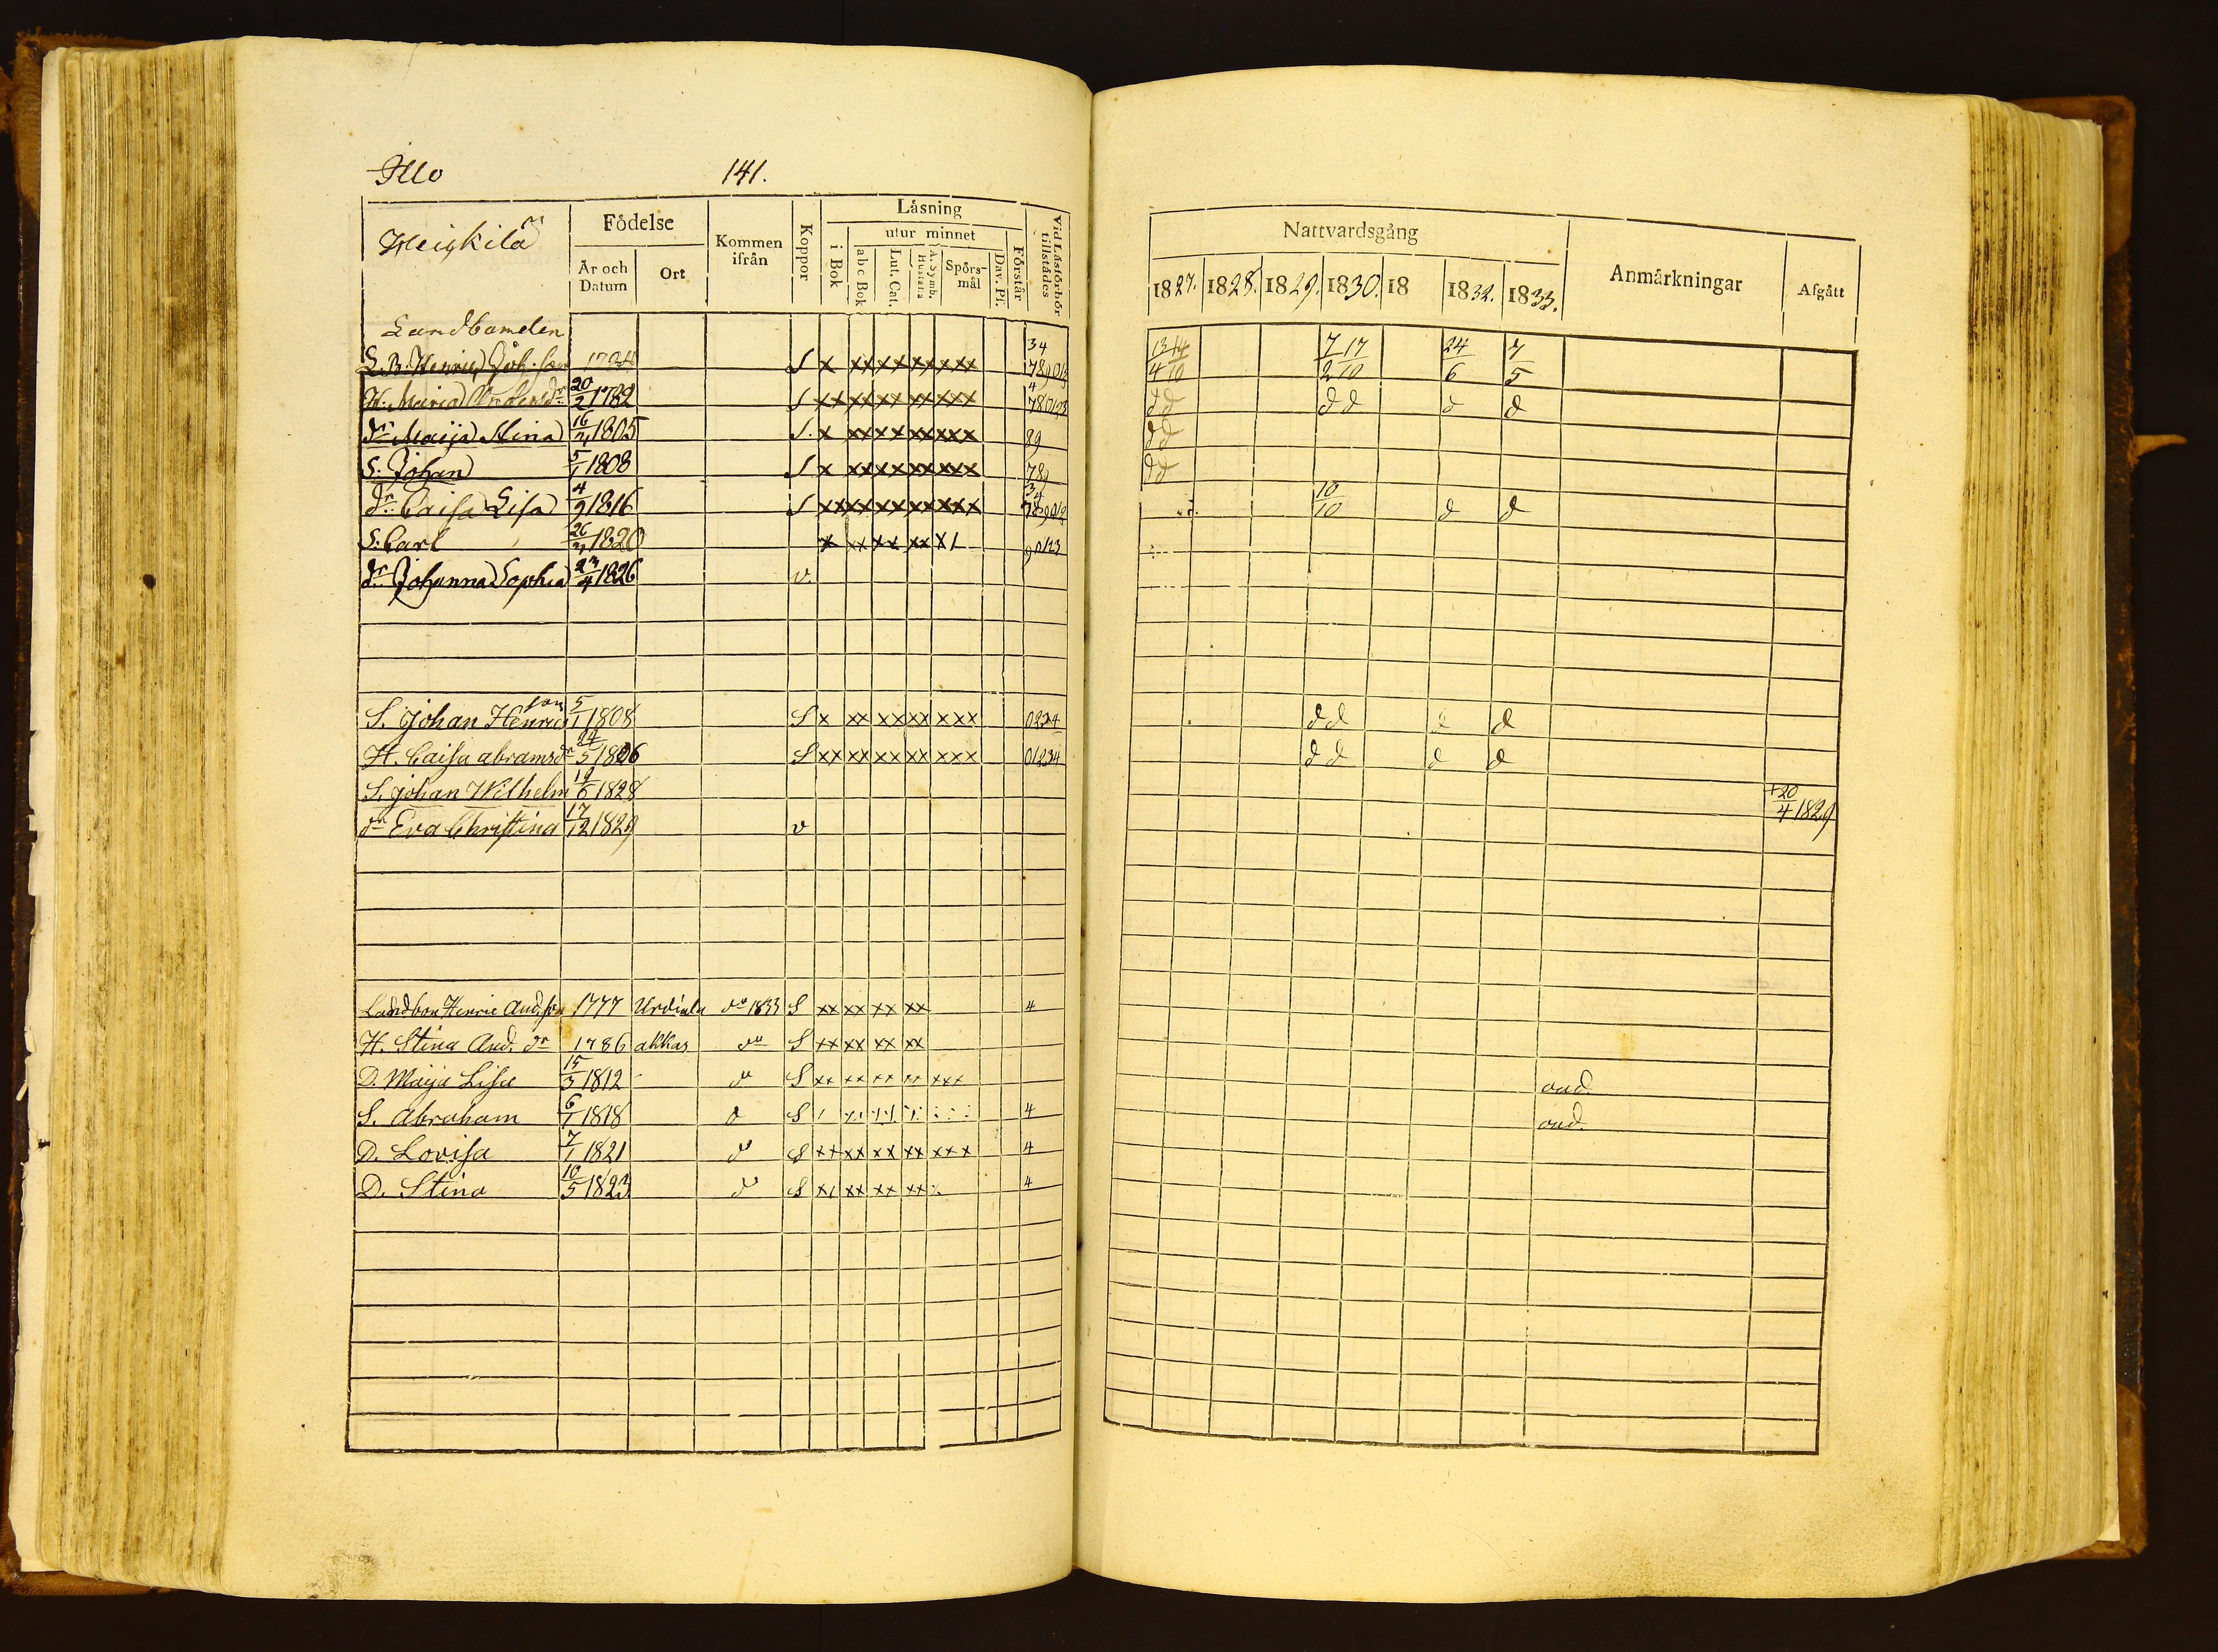 Illo 141.
Heickilä
Födelse
År och Datum
Ort
Kommen ifrån
Koppor
Läsning
i Bok
utur minnet
abc Bok
Lut. Cat.
A. Symb. Hustafla
Spörsmål
Dav. Pf.
Förstår
Vid Läsförhör tillstådes
Nattvardsgång
1827. 1828. 1829. 1830. 18 1832. 1833.
Anmärkningar
Afgått
Landbonden
34
L.B. Henric Joh:son S x xx xx xx xxx 13/4 14/10 7/2 17/10 24/6 7/5
H. Maria Andersdr 20/2 1782 S xx xx xx xx xxx d d d d d d
dr Maija Stina 16/4 1805 S. x xx xx xx xxx 89 d d
S. Johan 5/1 1808 S x xx xx xx xxx 789 d d
dr Caisa Lisa 4/9 1816 S xx xx xx xx xxx 10/10 d d
S. Carl 1820 x xx xx xx x1 90123
dr Johanna Sophia 23/4 1826 v.
S. Johan Henricson 5/1 1808 S x xx xx xx xxx 0234 d d d d
H. Caisa abramsdr 24/5 1806 S xx xx xx xx xxx 01234 d d d d
S. Johan Wilhelm 19/6 1828 +20/4 1829
dr Eva Christina 17/12 1829 v
Landbon Henric And.son 1777 Urdiala do 1833 S xx xx xx xx 4
H. Stina And. dr 1786 akkas do S xx xx xx xx
D. Maija Lisa 15/3 1812 do S xx xx xx xx xxx oad.
S. Abraham 6/1 1818 d S 4 oad.
D. Lovisa 7/1 1821 do S xx xx xx xx xxx 4
D. Stina 10/5 1823 do S x1 xx xx xx 4